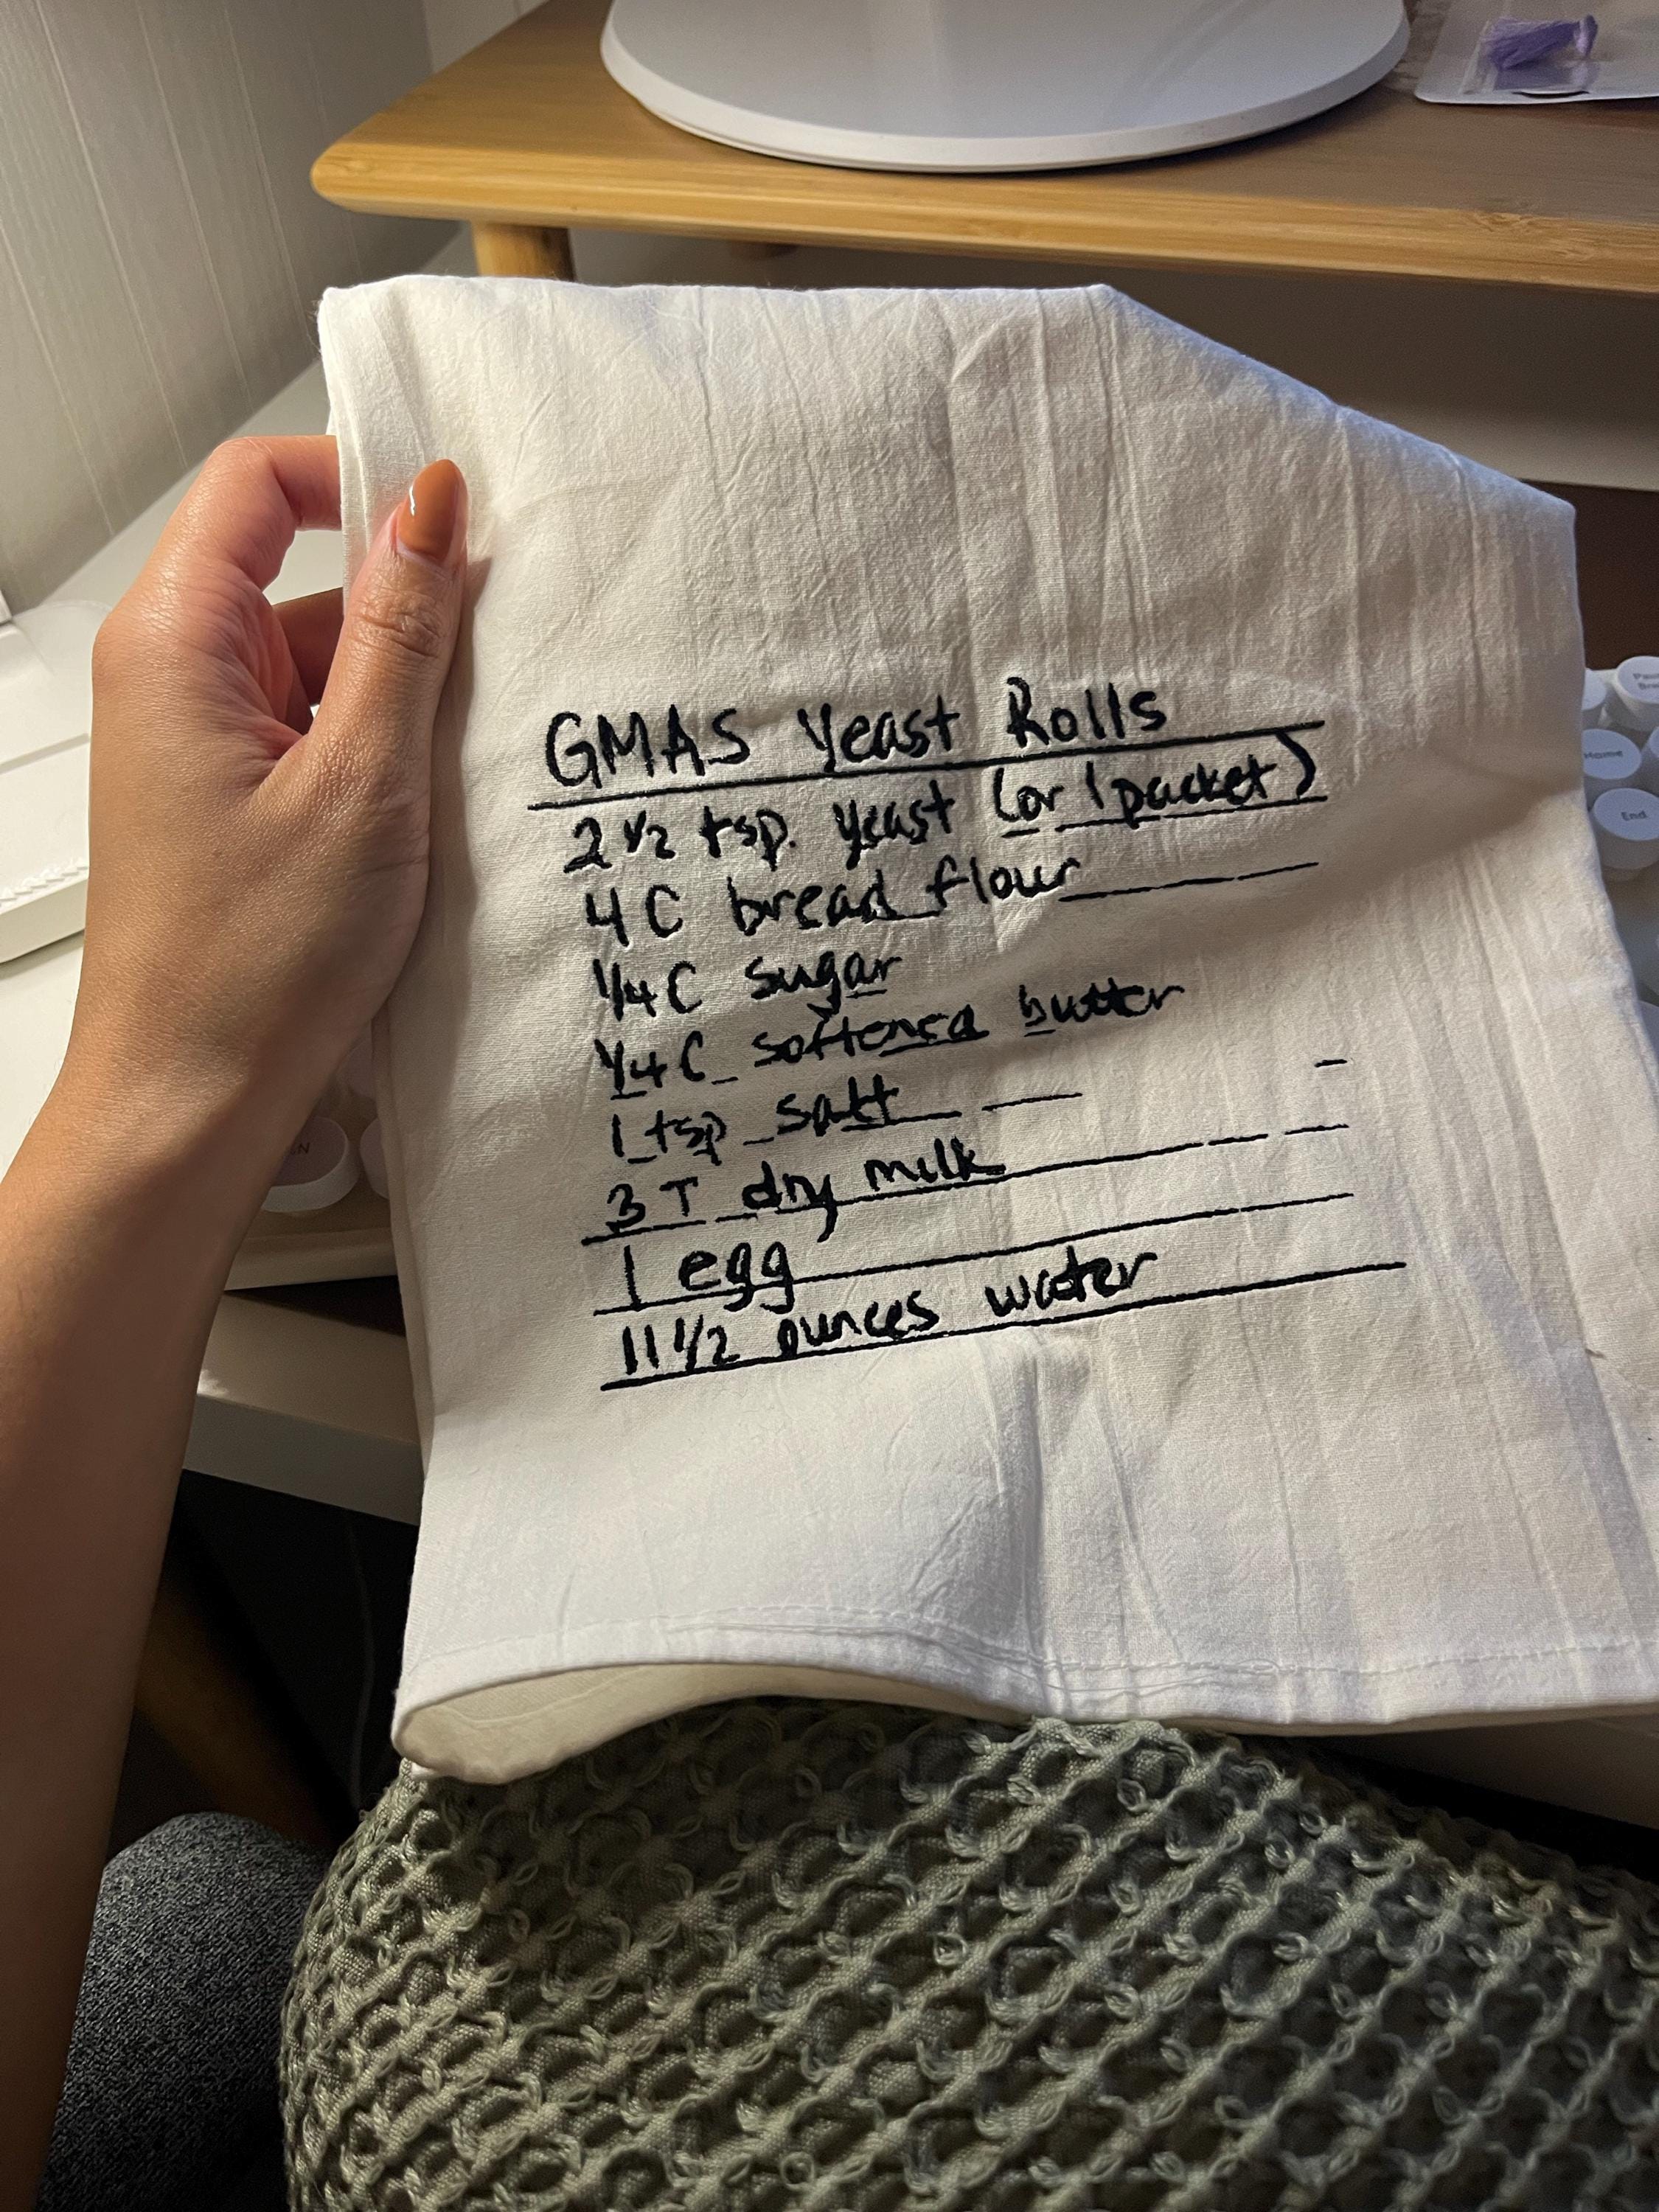 GMAS Yeast Rolls
2 1/2 tsp. yeast (or 1 packet)
4 C bread flour
1/4 C sugar
1/4 C softened butter
1 tsp salt
3 T dry milk
1 egg
11 1/2 ounces water
Home
End